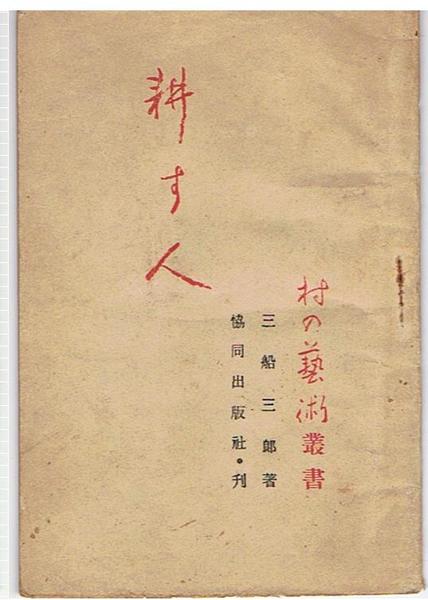 村の藝術叢書
三船三郎著
協同出版社・刊
耕す人